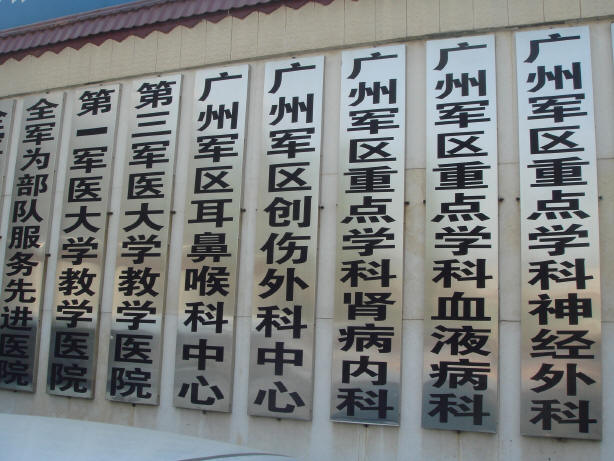 全军为部队服务先进医院
第一军医大学教学医院
第三军医大学教学医院
广州军区耳鼻喉科中心
广州军区创伤外科中心
广州军区重点学科肾病内科
广州军区重点学科血液病科
广州军区重点学科神经外科